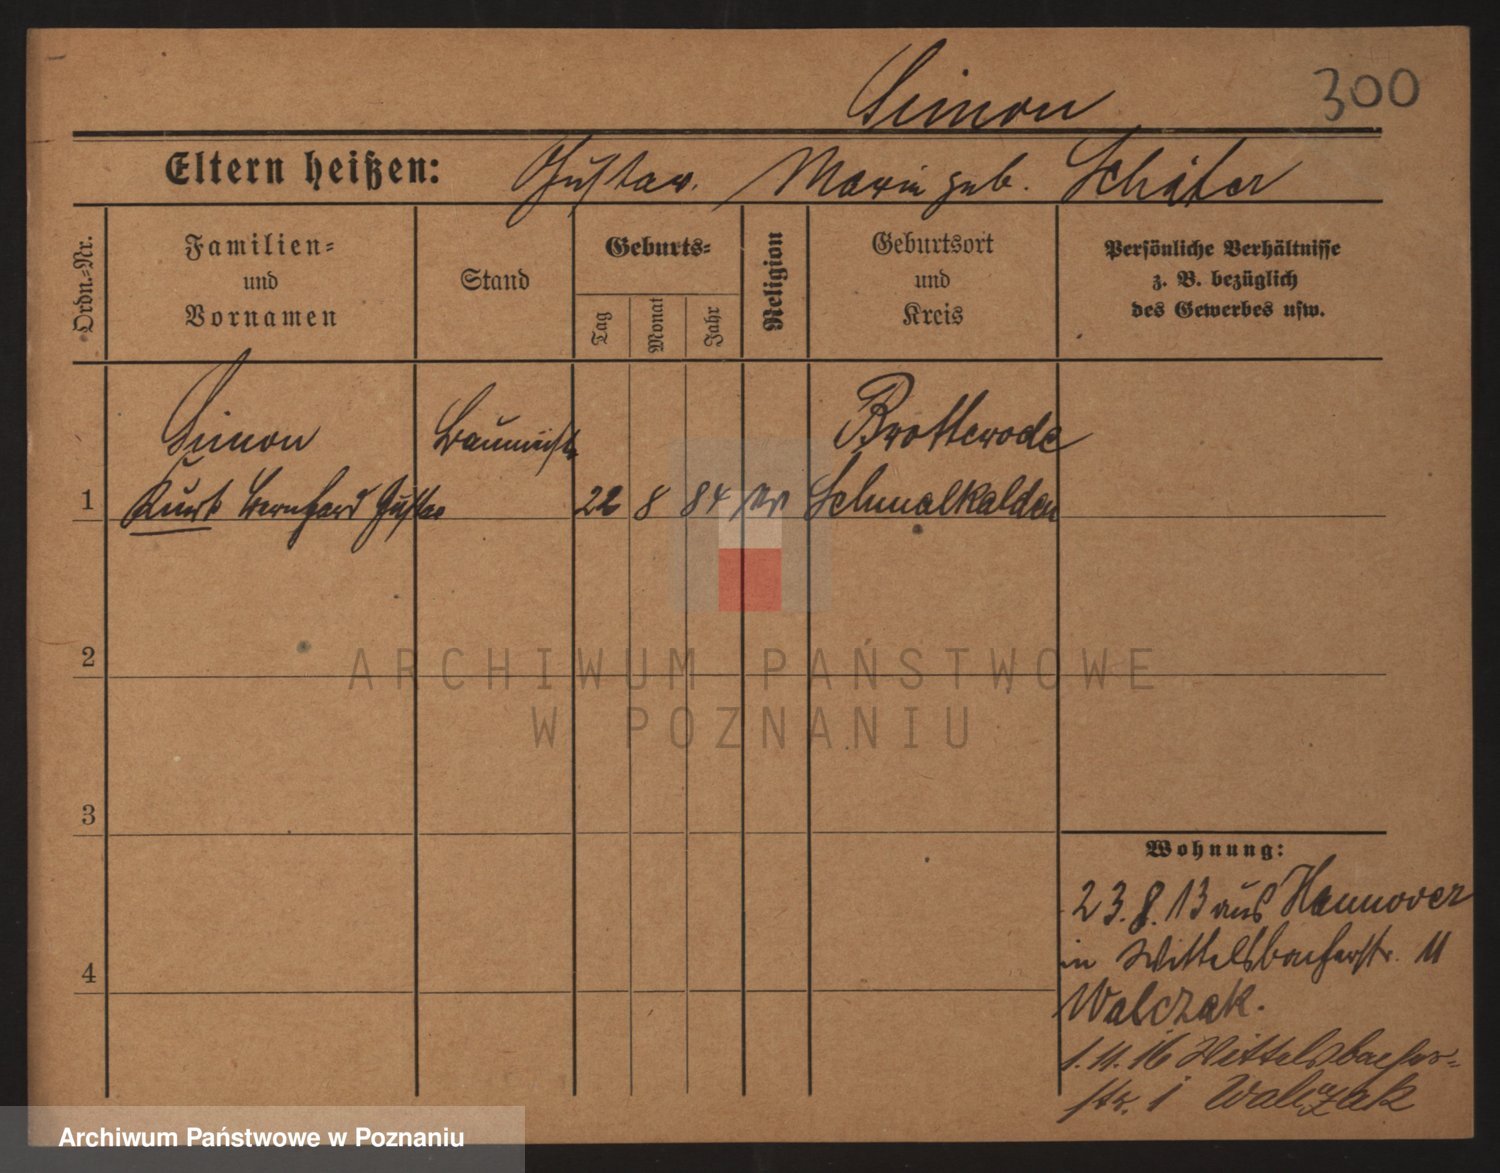 Simon
300
Eltern heißen: Gustav. Marie geb. Schäfer
Ordn.=Nr.
Familien=
und
Vornamen
Stand
Geburts=
Tag
Monat
Jahr
Religion
Geburtsort
und
Kreis
Persönliche Verhältnisse
z. B. bezüglich
des Gewerbes usw.
Simon
Kurt Bernhard Gustav
Baumeister
1
22 8 84
ev
Brotterode
Schmalkalden
2
ARCHIWUM PAŃSTWOWE
W POZNANIU
3
4
Wohnung:
23.8.13 aus Hannover
in Wittelsbacherstr. 11
Walczak.
1.11.16 Wittelsbacher=
str. 1 Walczak
Archiwum Państwowe w Poznaniu